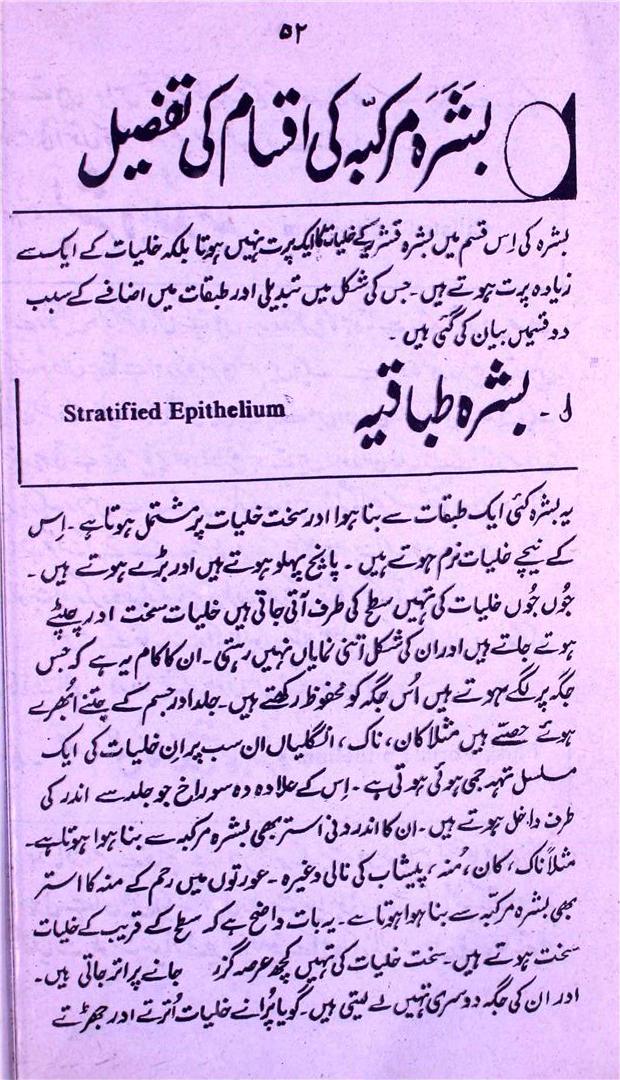 ۵۲
بَشَرَہ مرکبّہ کی اقسام کی تفصیل
بشرہ کی اِس قسم میں بشرہ قشریہ کے خلیات کا ایک پرت نہیں ہوتا بلکہ خلیات کے ایک سے
زیادہ پرت ہوتے ہیں۔ جس کی شکل میں تبدیلی اور طبقات میں اضافے کے سبب
دو قسمیں بیان کی گئی ہیں۔
۱۔ بشرہ طباقیہ Stratified Epithelium
یہ بشرہ کئی ایک طبقات سے بنا ہوا اور سخت خلیات پر مشتمل ہوتا ہے۔ اِس
کے نیچے خلیات نرم ہوتے ہیں۔ پانچ پہلو ہوتے ہیں اور بڑے ہوتے ہیں۔
جُوں جُوں خلیات کی تہیں سطح کی طرف آتی جاتی ہیں خلیات سخت اور چپٹے
ہوتے جاتے ہیں اور ان کی شکل اتنی نمایاں نہیں رہتی۔ ان کا کام یہ ہے کہ جس
جگہ پر لگے ہوتے ہیں اُس جگہ کو محفوظ رکھتے ہیں۔ جلد اور جسم کے جتنے اُبھرے
ہوئے حصّے ہیں مثلاً کان، ناک، انگلیاں ان سب پر اِن خلیات کی ایک
مسلسل تہہ جمی ہوئی ہوتی ہے۔ اِس کے علاوہ وہ سوراخ جو جلد سے اندر کی
طرف داخل ہوتے ہیں۔ ان کا اندرونی استر بھی بشرہ مرکبہ سے بنا ہوا ہوتا ہے۔
مثلاً ناک، کان، مُنہ، پیشاب کی نالی وغیرہ۔ عورتوں میں رحم کے منہ کا استر
بھی بشرہ مرکبّہ سے بنا ہوا ہوتا ہے۔ یہ بات واضح ہے کہ سطح کے قریب کے خلیات
سخت ہوتے ہیں۔ سخت خلیات کی تہیں کچھ عرصہ گزر جانے پر اتر جاتی ہیں۔
اور ان کی جگہ دوسری تہیں لے لیتی ہیں۔ گویا پُرانے خلیات اُترتے اور جھڑتے